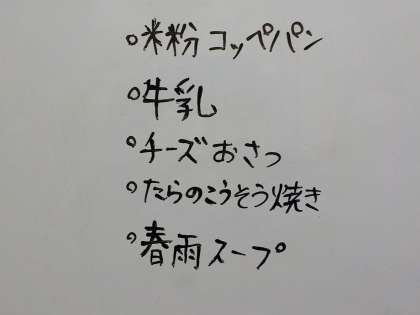 ○米粉コッペパン
○牛乳
○チーズおさつ
○たらのこうそう焼き
○春雨スープ